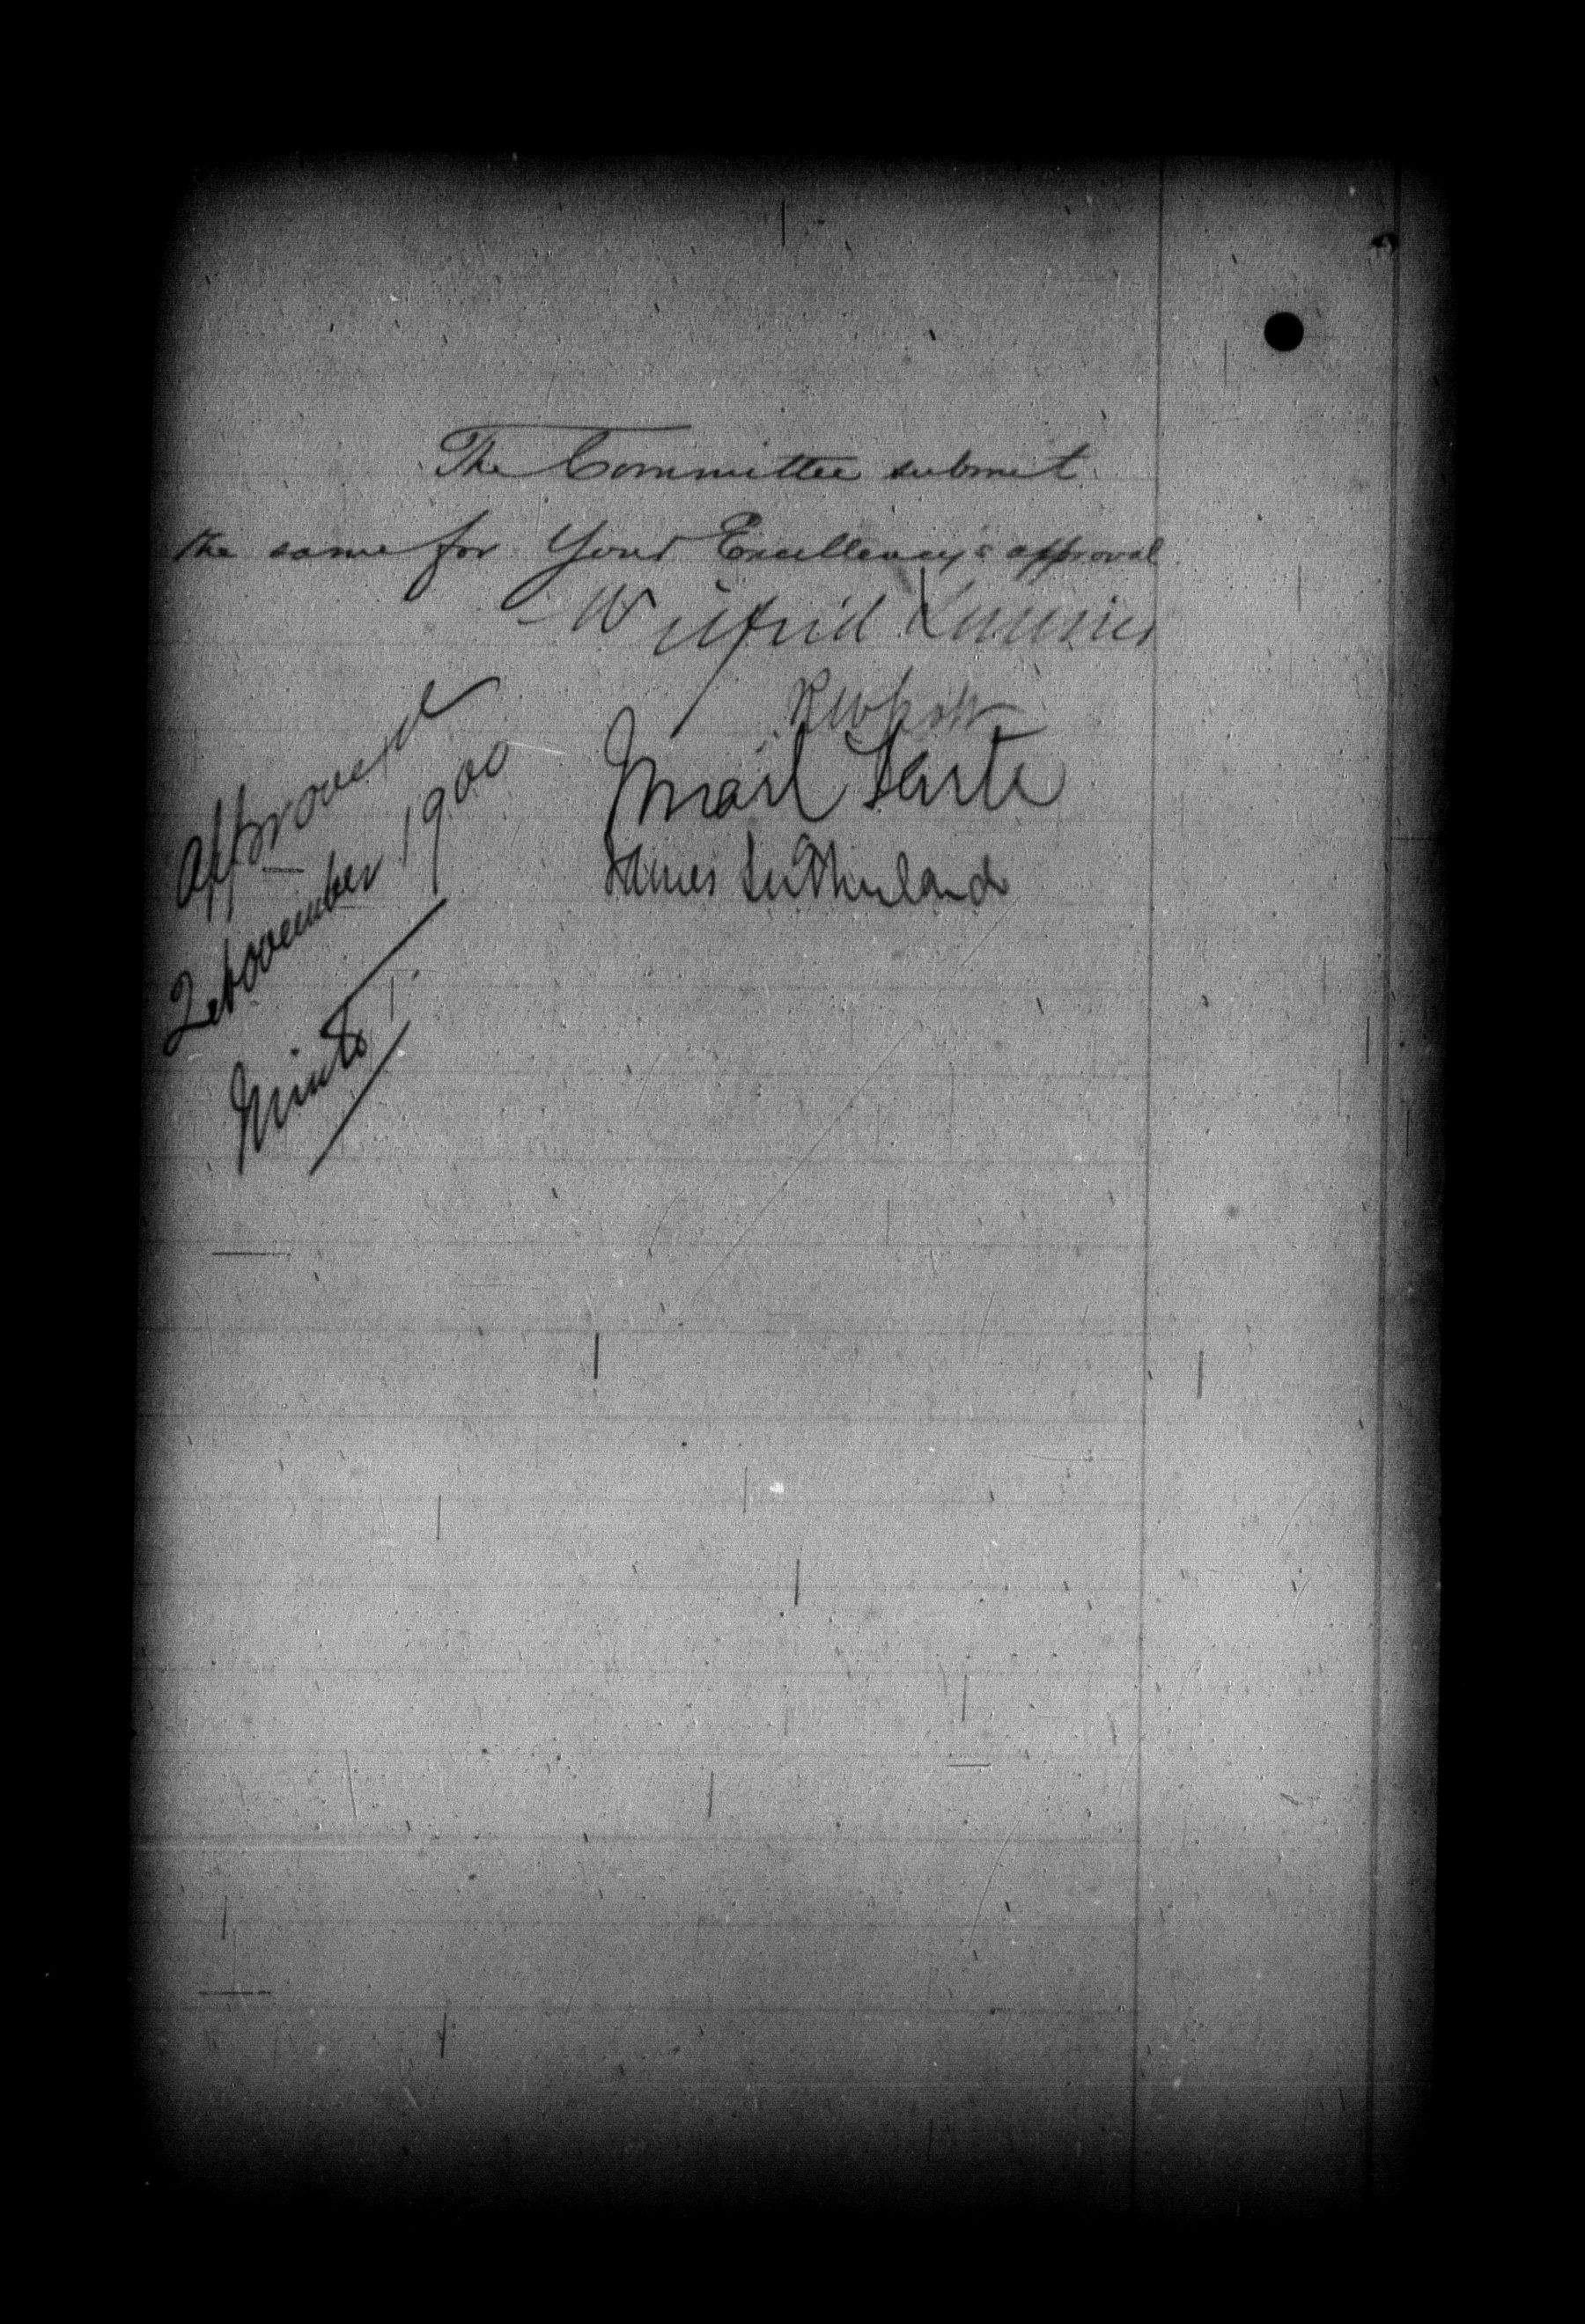 The Committee submit
the same for Your Excellency's approval
Wilfrid Laurier
RWScott
J Israel Tarte
James Sutherland
Approved
2 November 1900
Minto